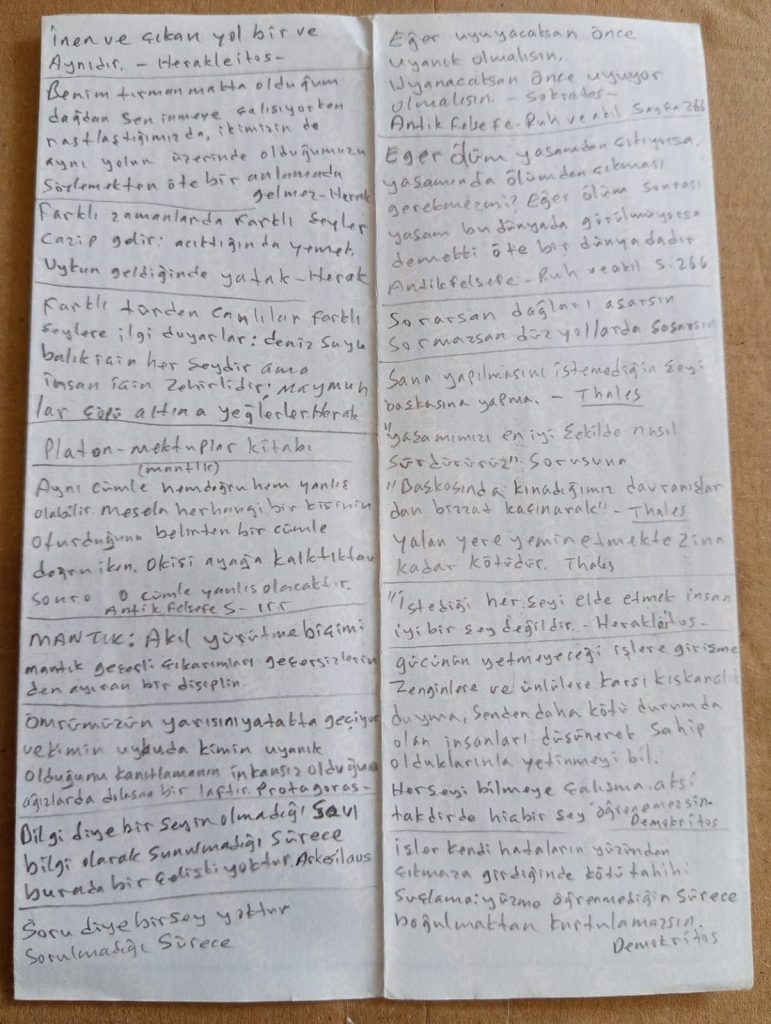 İnen ve çıkan yol bir ve
Aynıdır. - Herakleitos -
Benim tırmanmakta olduğum
dağdan sen inmeye çalışıyorken
rastlaştığımızda, ikimizin de
aynı yolun üzerinde olduğumuzu
Söylemekten öte bir anlamında
gelmez - Herak
Farklı zamanlarda Farklı Şeyler
Cazip gelir: acıktığında yemek,
Uykun geldiğinde yatak - Herak
Farklı türden Canlılar farklı
şeylere ilgi duyarlar: deniz Suyu
balık için her şeydir ama
insan için Zehirlidir; Maymun
lar çöpü altına yeğlerler Herak
Platon - mektuplar kitabı
(mantık)
Aynı cümle hem doğru hem yanlış
olabilir. mesela herhangi bir kişinin
oturduğunu belirten bir cümle
doğru iken, O kişi ayağa kalktıktan
sonra O cümle yanlış olacaktır.
Antik Felsefe S - 155
MANTIK: Akıl yüşütme biçimi
mantık geçerli çıkarımları geçersizlerin
den ayıran bir disiplin
Ömrümüzün yarısını yatakta geçiyor
ve kimin uykuda kimin uyanık
Olduğunu kanıtlamanın inkansız olduğu
ağızlarda dılasan bir laftır. Protagoras -
Bilgi diye bir Şeyin olmadığı Savı
bilgi olarak Sunulmadığı Sürece
burada bir çelişti yoktur. Arkesilaus
Soru diye bir şey yoktur
Sorulmadığı Sürece
Eğer uyuyacaksan önce
uyanık olmalısın.
Uyanacaksan önce uyuyor
olmalısın. - Sokrates -
Antik Felsefe - Ruh ve akıl Sayfa 266
Eğer Ölüm yaşamdan çıkıyorsa,
yaşamında ölümden çıkması
gerekmezmi? Eğer ölüm sonrası
yaşam bu dünyada görülmüyorsa
demekki öte bir dünyadadır
Antik Felsefe - Ruh ve akıl S. 266
Sorarsan dağları aşarsın
Sormazsan düz yollarda şaşarsın
Sana yapılmasını istemediğin şeyi
başkasına yapma. - Thales
"yaşamımızı en iyi şekilde nasıl
Sürdürürüz" Sorusuna
"Başkasında kınadığımız davranışlar
dan bizzat kaçınarak" - Thales
Yalan yere yemin etmekte zina
kadar kötüdür. Thales
"İstediği her şeyi elde etmek insan
iyi bir şey değildir. - Herakleitos -
gücünün yetmeyeceği işlere girişme
Zenginlere ve ünlülere karşı kıskançlık
duyma, Senden daha kötü durumda
olan insanları düşünerek Sahip
olduklarınla yetinmeyi bil.
Herşeyi bilmeye çalışma. aksi
takdirde hiçbir şey öğrenemezsin.
Demokritos
İşler kendi hataların yüzünden
çıkmaza girdiğinde kötü tahihi
Suçlama: yüzme öğrenmediğin Sürece
boğulmaktan kurtulamazsın.
Demokritos